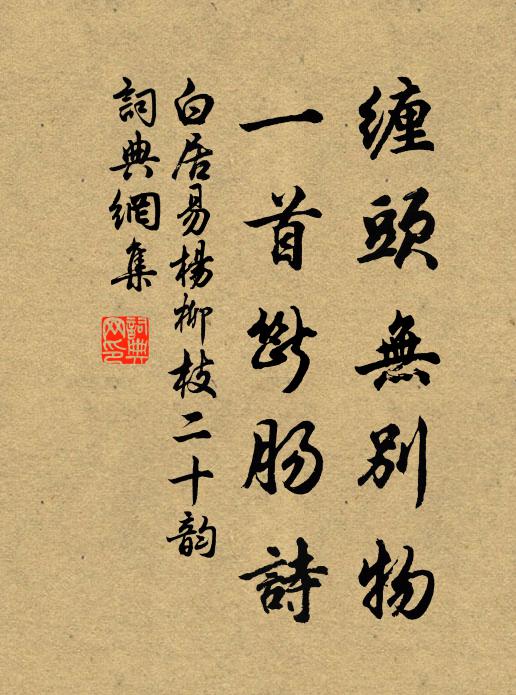 纏頭無別物
一首斷腸詩
白居易楊柳枝二十韵
詞典網集
詞典網印